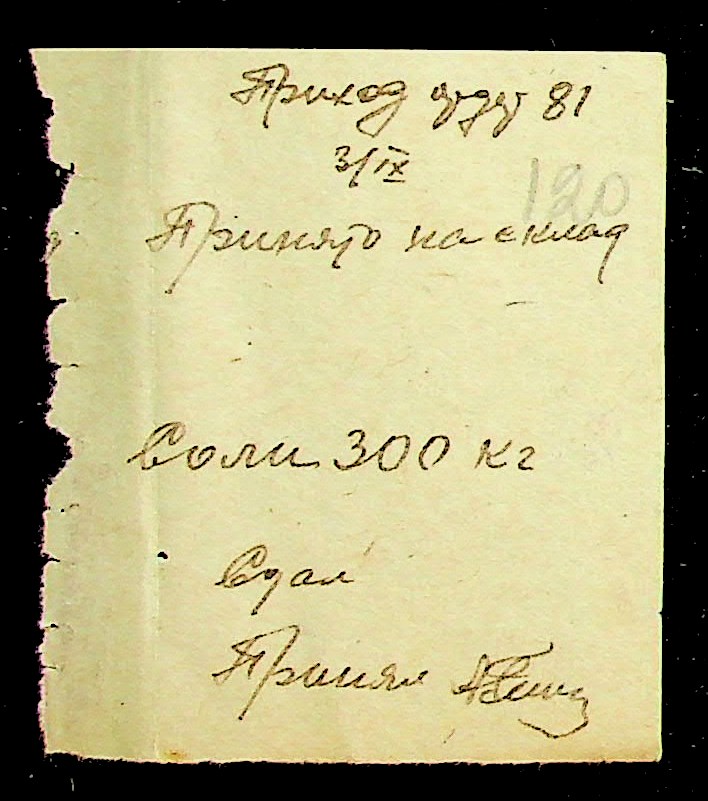 Приход ордер 81
3/IX
120
Принято на склад
Соли 300 кг
Сдал
Принял